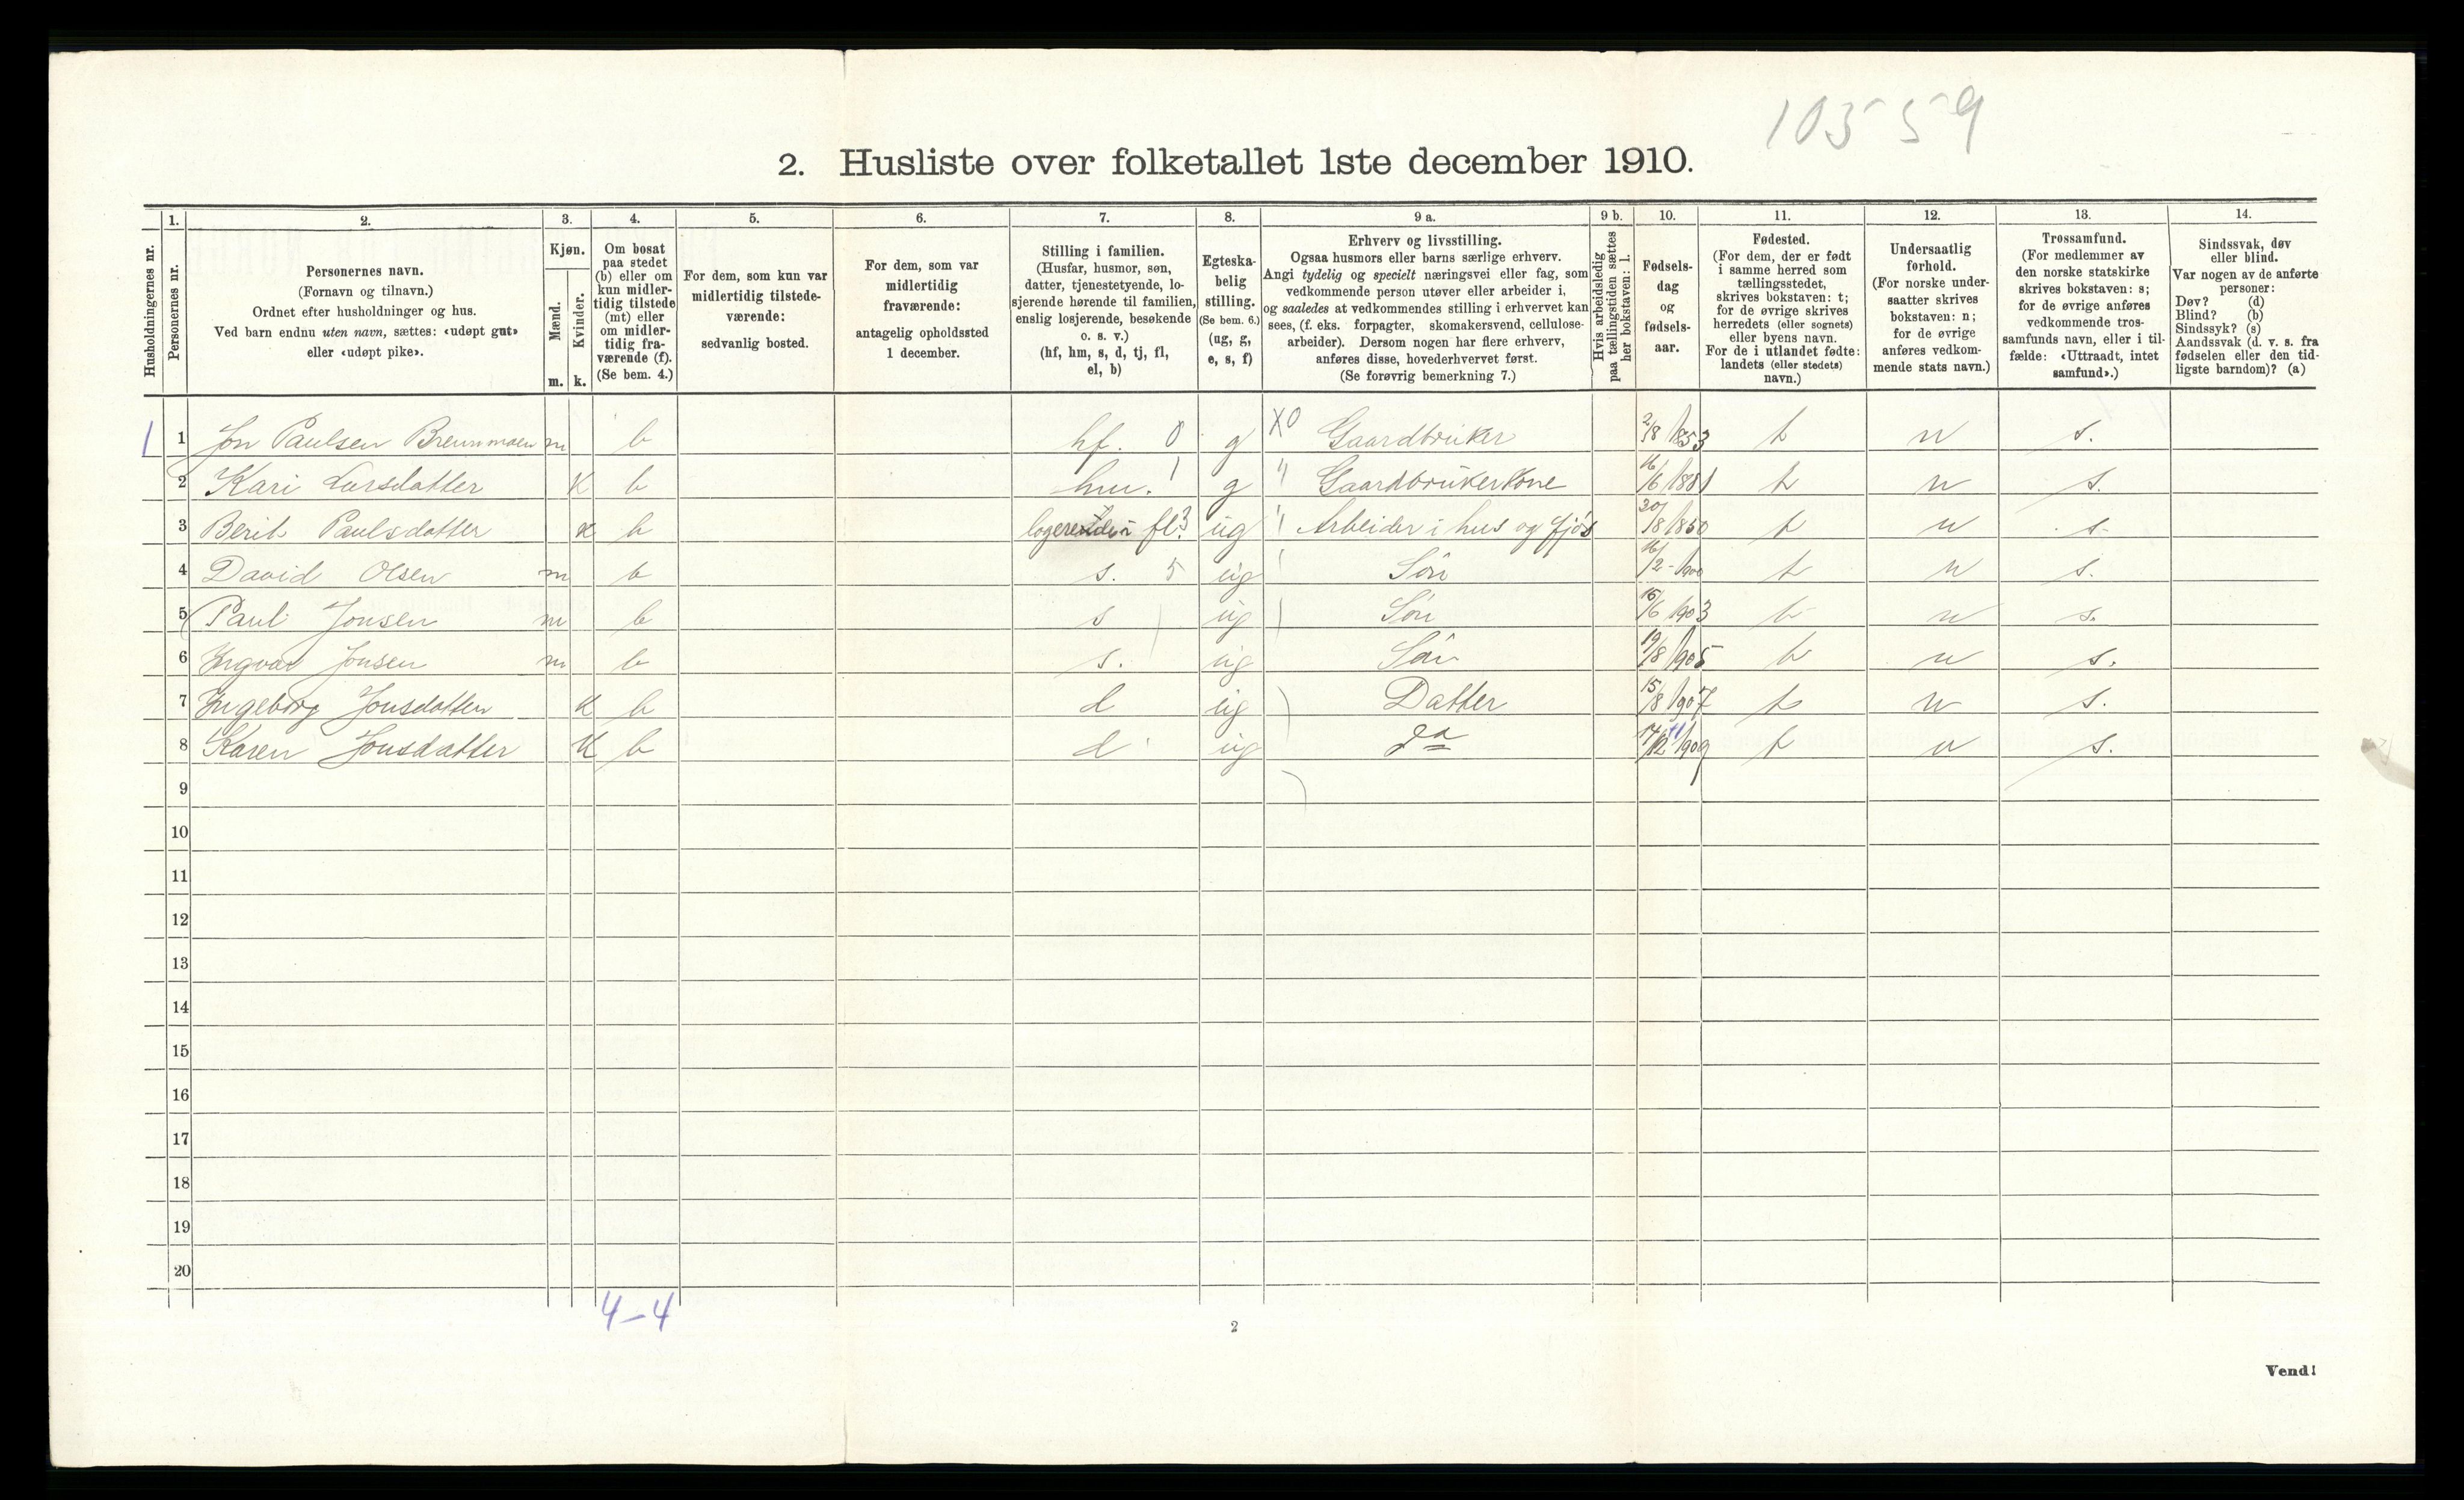 10559
2. Husliste over folketallet 1ste december 1910.
Husholdningernes nr.
1.
Personernes nr.
2.
Personernes navn.
(Fornavn og tilnavn.)
Ordnet efter husholdninger og hus.
Ved barn endnu uten navn, sættes: «udøpt gut»
eller «udøpt pike».
3.
Kjøn.
Mænd.
Kvinder.
m. k.
4.
Om bosat
paa stedet
(b) eller om
kun midler-
tidig tilstede
(mt) eller
om midler-
tidig fra-
værende (f).
(Se bem. 4.)
5.
For dem, som kun var
midlertidig tilstede-
værende:
sedvanlig bosted.
6.
For dem, som var
midlertidig
fraværende:
antagelig opholdssted
1 december.
7.
Stilling i familien.
(Husfar, husmor, søn,
datter, tjenestetyende, lo-
sjerende hørende til familien,
enslig losjerende, besøkende
o. s. v.)
(hf, hm, s, d, tj, fl,
el, b)
8.
Egteska-
belig
stilling.
(Se bem. 6.)
(ug, g,
e, s, f)
9 a.
Erhverv og livsstilling.
Ogsaa husmors eller barns særlige erhverv.
Angi tydelig og specielt næringsvei eller fag, som
vedkommende person utøver eller arbeider i,
og saaledes at vedkommendes stilling i erhvervet kan
sees, (f. eks. forpagter, skomakersvend, cellulose-
arbeider). Dersom nogen har flere erhverv,
anføres disse, hovederhvervet først.
(Se forøvrig bemerkning 7.)
9 b.
Hvis arbeidsledig
paa tællingstiden sættes
her bokstaven: l.
10.
Fødsels-
dag
og
fødsels-
aar.
11.
Fødested.
(For dem, der er født
i samme herred som
tællingsstedet,
skrives bokstaven: t;
for de øvrige skrives
herredets (eller sognets)
eller byens navn.
For de i utlandet fødte:
landets (eller stedets)
navn.)
12.
Undersaatlig
forhold.
(For norske under-
saatter skrives
bokstaven: n;
for de øvrige
anføres vedkom-
mende stats navn.)
13.
Trossamfund.
(For medlemmer av
den norske statskirke
skrives bokstaven: s;
for de øvrige anføres
vedkommende tros-
samfunds navn, eller i til-
fælde: «Uttraadt, intet
samfund».)
14.
Sindssvak, døv
eller blind.
Var nogen av de anførte
personer:
Døv? (d)
Blind? (b)
Sindssyk? (s)
Aandssvak (d. v. s. fra
fødselen eller den tid-
ligste barndom)? (a)
1 1 Jon Paulsen Brennmoen m b hf. 0 g X0 Gaardbruker 2/8 1853 t n s.
2 Kari Larsdatter K b hm. 1 g " Gaardbrukerkone 16/6 1881 t n s.
3 Berit Paulsdatter K b fl 3 ug " Arbeider i hus og fjøs 20/8 1850 t n s.
4 David Olsen m b s. 5 ug Søn 16/2 - 1900 t n s.
5 Paul Jonsen m b s ug Søn 15/6 1903 t n s.
6 Ingvar Jonsen m b s. ug Søn 19/8 1905 t n s.
7 Ingeborg Jonsdatter K b d ug Datter 15/8 1907 t n s.
8 Karen Jonsdatter K b d ug da 1909 t n s.
9
10
11
12
13
14
15
16
17
18
19
20
4-4
2
Vend!